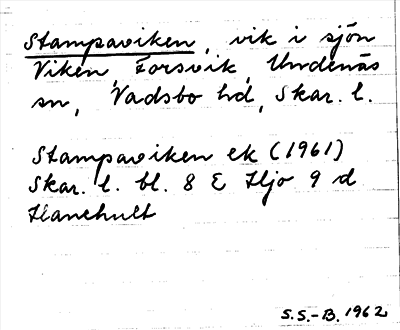 Stampaviken, vik i sjön
Viken, Forsvik, Undenäs
sn, Vadsbo hd, Skar. l.
Stampaviken ek (1961)
Skar. l. bl. 8 E Hjo 9 d
Hanehult
S.S.-B. 1962